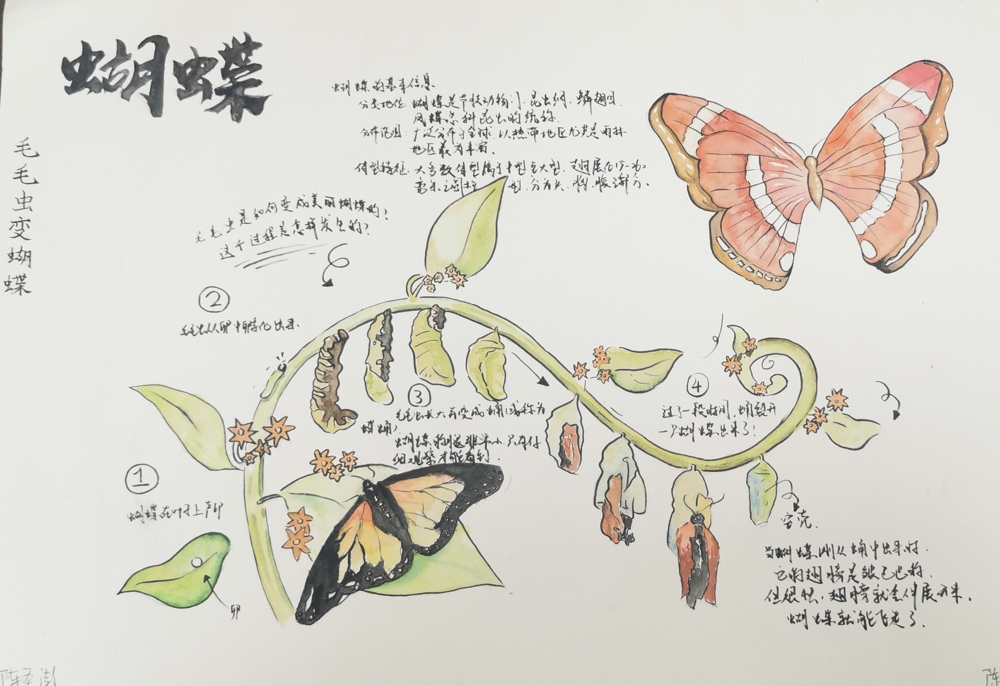 蝴蝶
毛毛虫变蝴蝶
蝴蝶的基本信息
分类地位 蝴蝶是节肢动物门、昆虫纲、鳞翅目
昆虫的统称
分布范围 广泛分布于全球 以热带地区尤其是雨林
地区最为丰富
体型特征 大多数体型属于中型至大型 翅展在15-
分为头、胸、腹
毛毛虫是如何变成美丽蝴蝶的？
这个过程是怎样发生的？
②
毛毛虫从卵中孵化出来.
③
毛毛虫长大后变成蛹(或称为
蝶蛹)
蝴蝶 非常小 只有仔
细观察才能看到
④
过了一段时间，蛹裂开
一只蝴蝶出来了！
①
蝴蝶在叶子上产卵
卵
空壳.
当蝴蝶刚从蛹中出来时.
它的翅膀是皱巴巴的.
但很快，翅膀就会伸展开来.
蝴蝶就能飞走了.
陈
陈